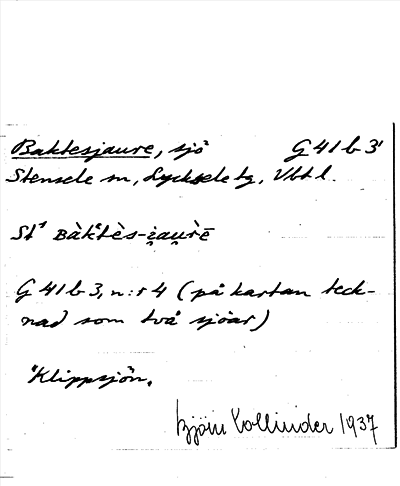 Baktesjaure, sjö G 41 b 3
Stensele sn, Lycksele tg, Vbtl.
St¹ ʙàkˈtès-i̯au̯rē
G 41 b 3, n:r 4 (på kartan teck-
nad som två sjöar)
"Klippsjön.
Björn Collinder 1937